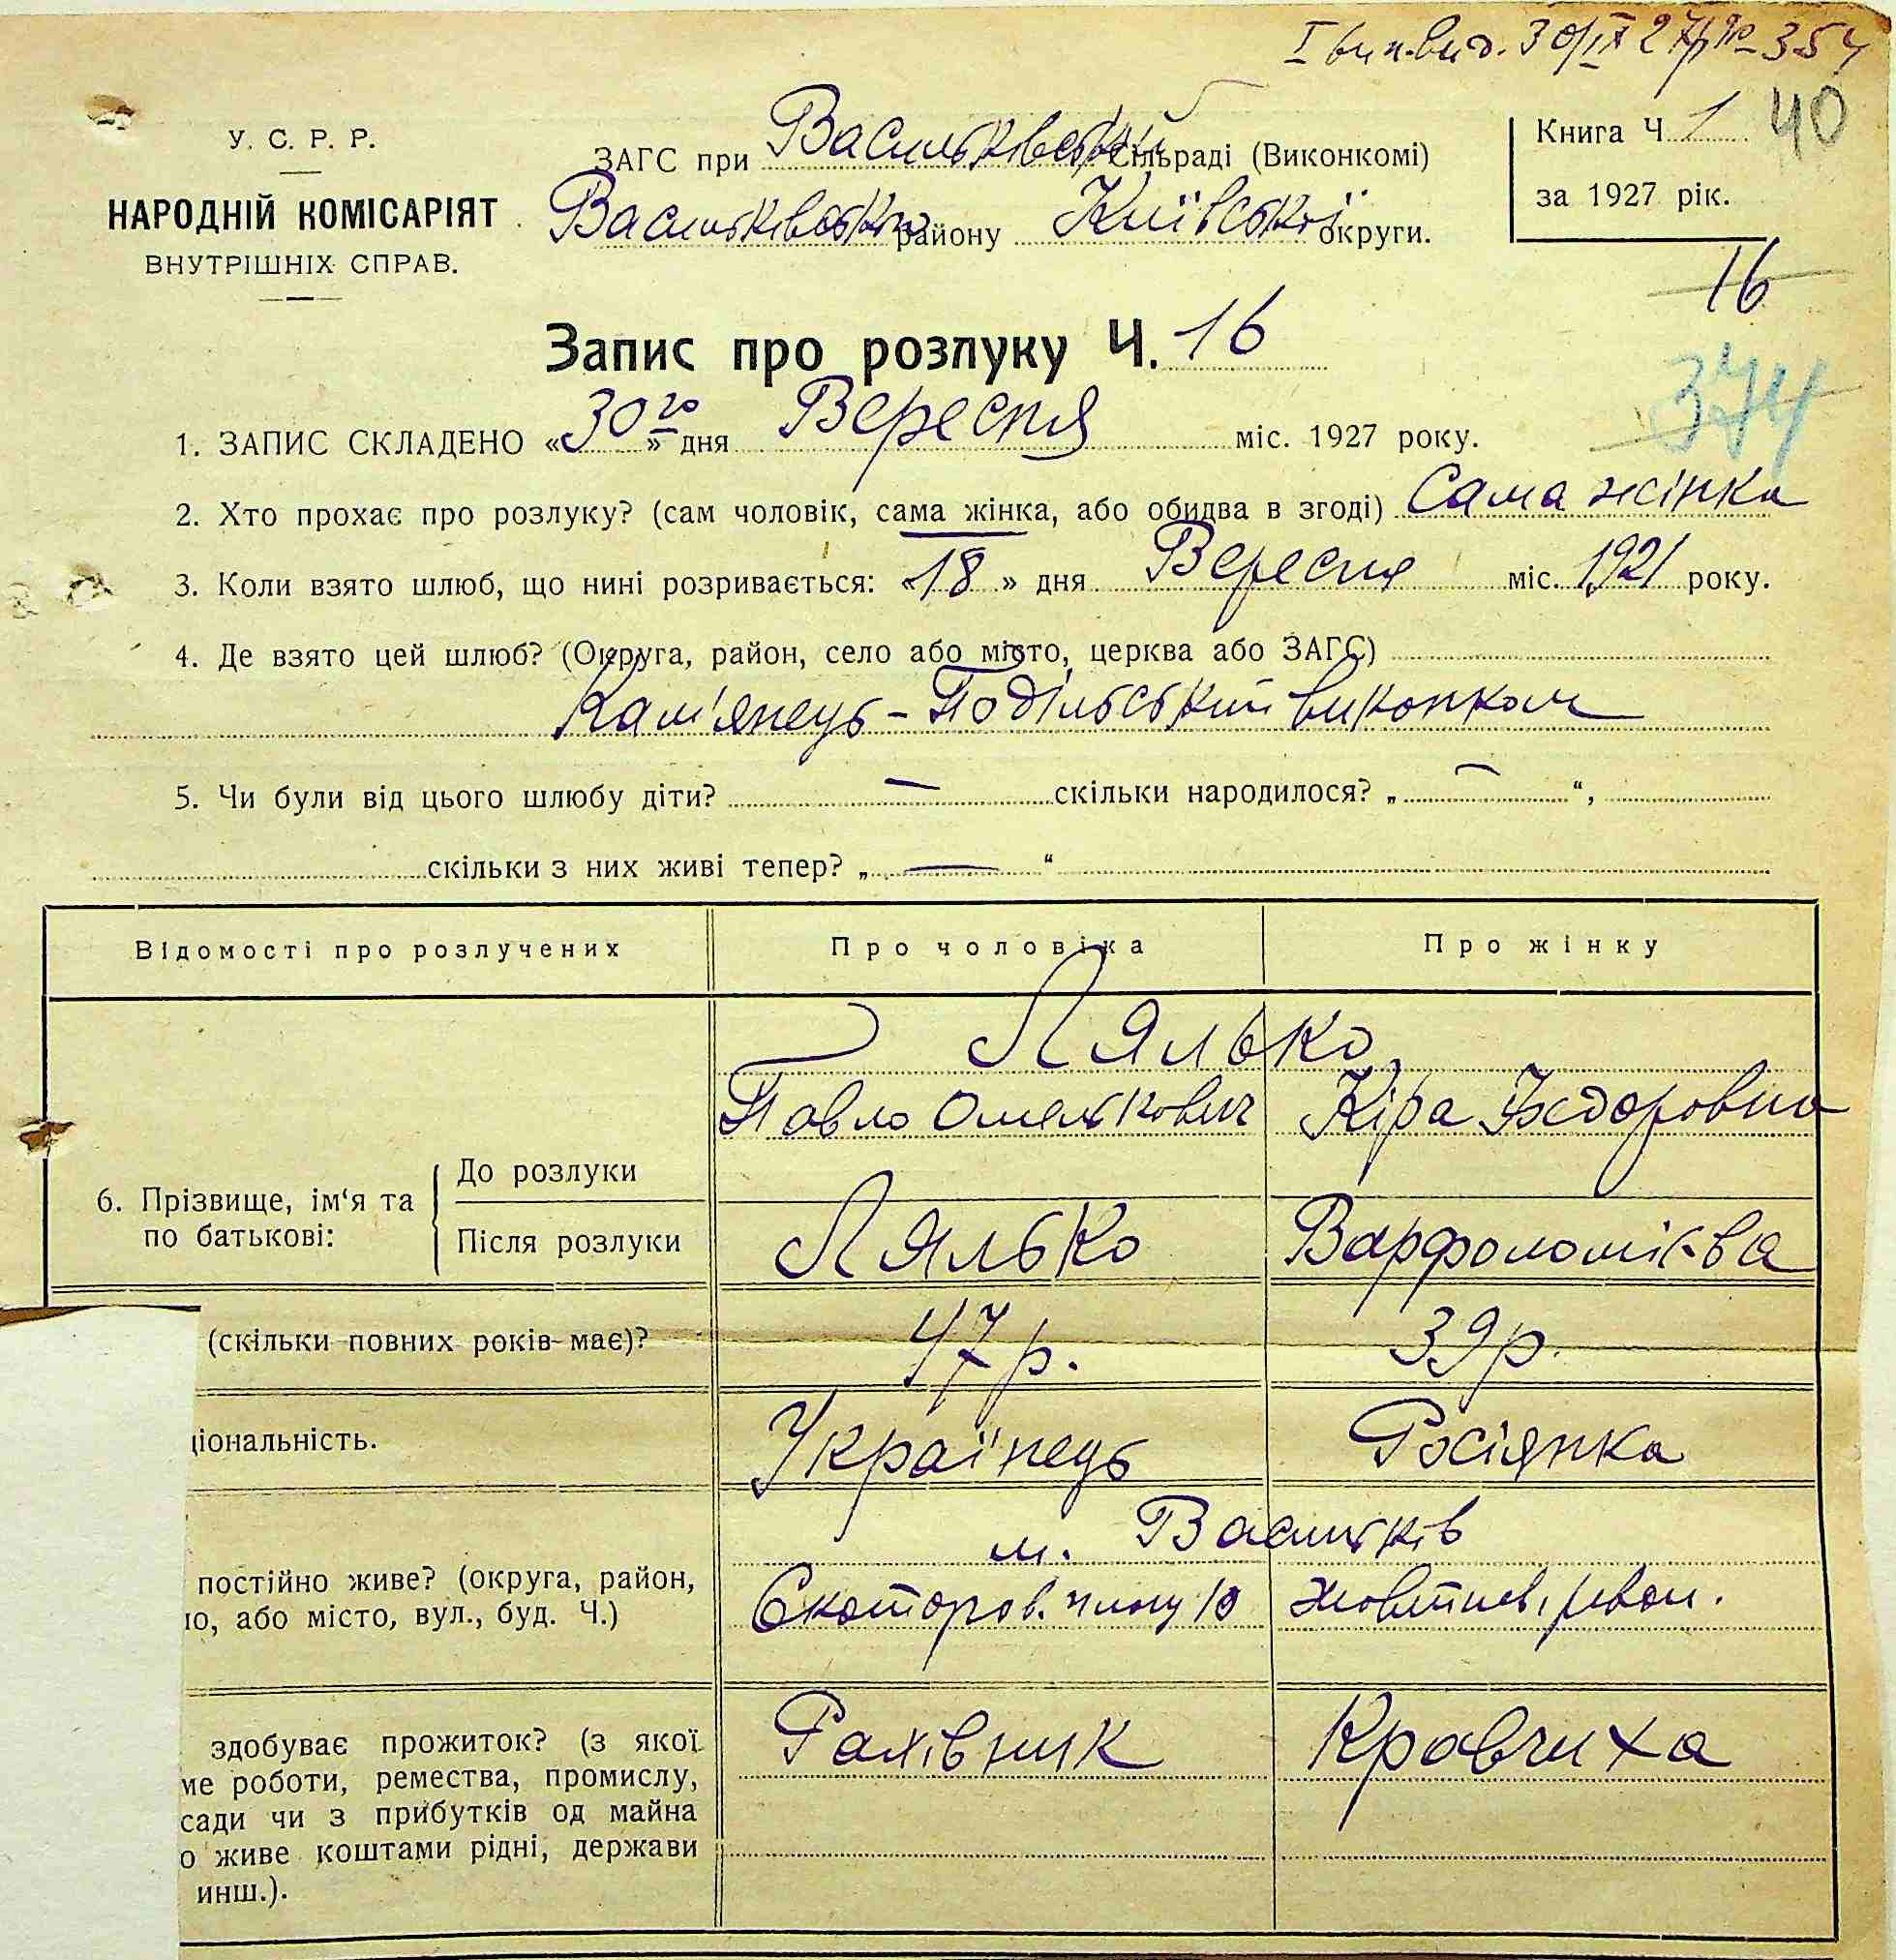 І вип. вид. 30/ІХ 27р № 354
У. С. Р. Р.
НАРОДНІЙ КОМІСАРІЯТ
ВНУТРІШНІХ СПРАВ.
ЗАГС при Васильківській Сільраді (Виконкомі)
Васильківського району Київської округи.
Книга Ч 1 40
за 1927 рік.
16
Запис про розлуку Ч. 16
374
1. ЗАПИС СКЛАДЕНО «30го» дня Вересня міс. 1927 року.
2. Хто прохає про розлуку? (сам чоловік, сама жінка, або обидва в згоді) Сама жінка
3. Коли взято шлюб, що нині розривається: «18» дня Вересня міс. 1921 року.
4. Де взято цей шлюб? (Округа, район, село або місто, церква або ЗАГС)
Кам'янець-Подільський виконком
5. Чи були від цього шлюбу діти? — скільки народилося? „ — “,
скільки з них живі тепер? „ — “
Відомості про розлучених Про чоловіка Про жінку
Лялько
Павло Омелькович Кіра Ісидоровна
6. Прізвище, ім‘я та по батькові:
До розлуки
Після розлуки Лялько Варфоломієва
(скільки повних років має)? 47 р. 39 р.
ціональність. Українець Росіянка
м. Васильків
постійно живе? (округа, район,
ло, або місто, вул., буд. Ч.) 10 Жовтнев. револ.
здобуває прожиток? (з якої Рахівник Кравчиха
ме роботи, ремества, промислу,
сади чи з прибутків од майна
о живе коштами рідні, держави
инш.).